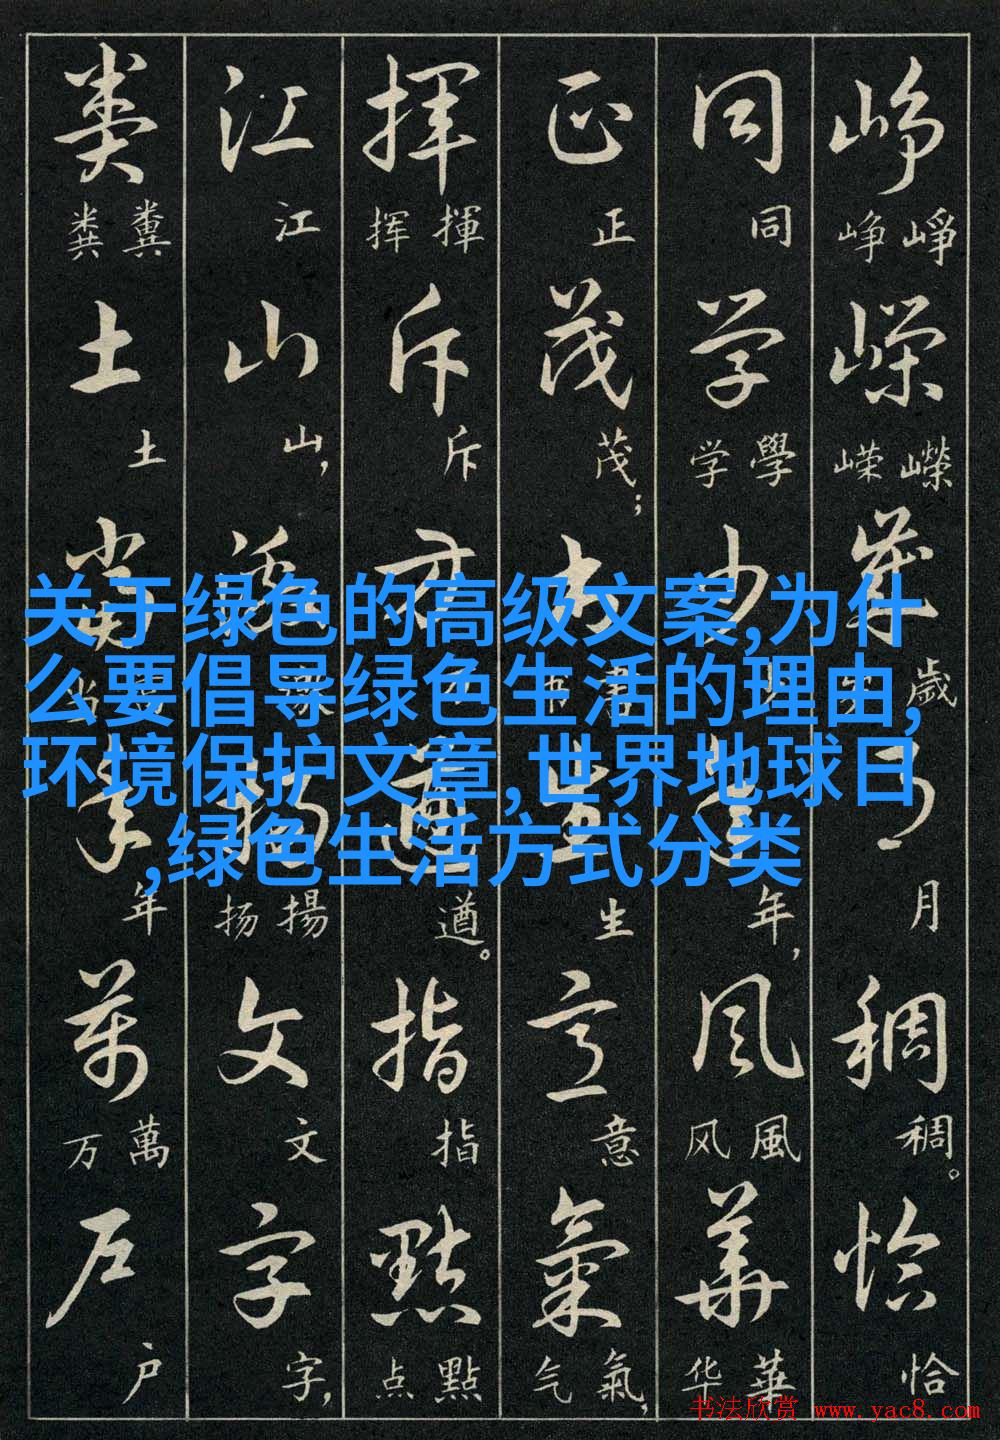 峥嵘岁月稠恰
峥崢嵘嶸歲月稠。恰
同学少年风华
同学學年,风風华華
正茂书生意氣
正茂;书書生意气氣,
挥斥方遒指點
挥揮斥方遒。指点點
江山激扬文字
江山,扬揚文字,
粪土当年万户
粪糞土当年万萬户
关于绿色的高级文案,为什
么要倡导绿色生活的理由,
环境保护文章,世界地球日
,绿色生活方式分类
书法欣赏 www.yac8.com